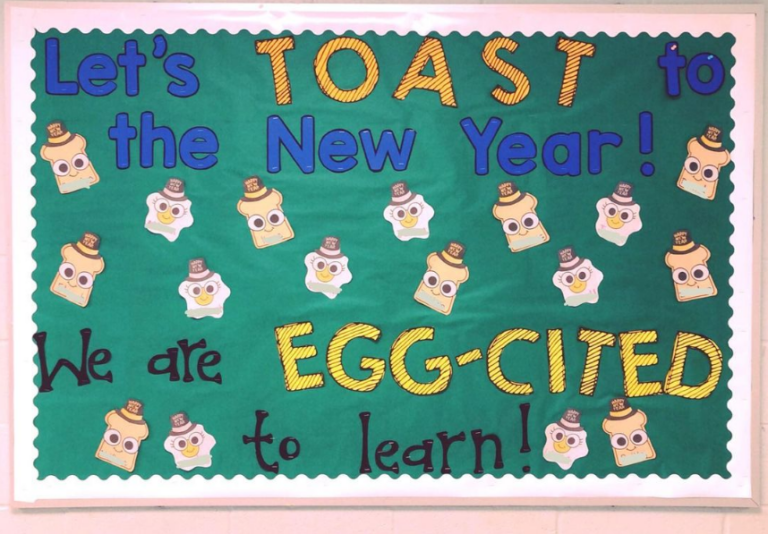 Let's TOAST to
the New Year!
We are EGG-CITED
to learn!